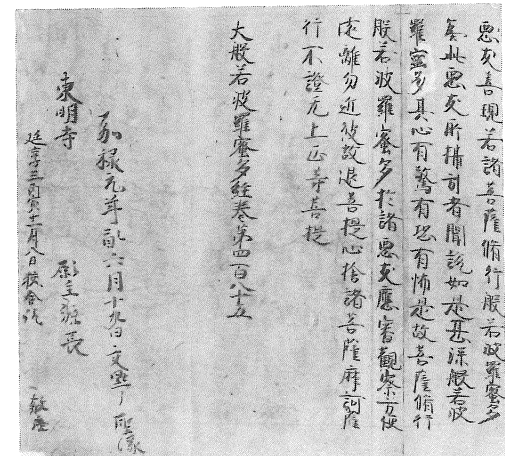 惡友善現若諸菩薩脩行般若波羅蜜多
無此惡友所攝引者聞說如是甚深般若波
羅蜜多其心有驚有恐有怖是故菩薩脩行
般若波羅蜜多於諸惡友應審觀察方便
遠離勿近彼故退菩提心捨諸菩薩摩訶薩
行不證无上正等菩提
大般若波羅蜜多經卷第四百八十五
嘉禄元年乙酉六月十九日交點了 聖源
東明寺 願主 長
延享三丙寅十二月八日校合訖